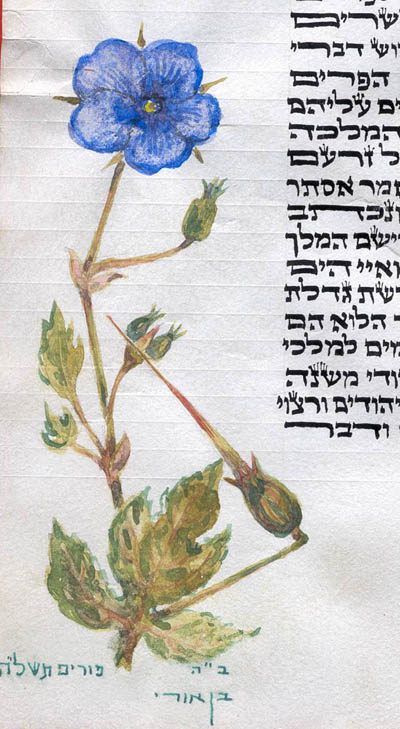 שרים
וש דברי
הפרים
ים עליהם
המלכה
ל זרעם
מר אסתר
ונכתב
וישם המלך
ואיי הים
רשת גדלת
ך הלוא הם
מים למלכי
ודי משנה
יהודים ורצוי
ודבר
ב"ה
פורים תשל"ה
בן אורי